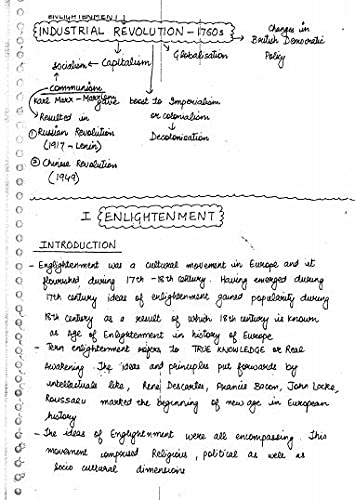 ENLIGHTENMENT
INDUSTRIAL REVOLUTION - 1760s → Changes in
British Democratic
Policy
Socialism ← Capitalism
Globalisation
Communism
Karl Marx - Marxism
gave boost to Imperialism
or colonialism
Decolonisation
Resulted in
① Russian Revolution
(1917 - Lenin)
② Chinese Revolution
(1949)
I ENGLIGHTENMENT
INTRODUCTION
- Englightenment was a cultural movement in Europe and it
flourished during 17th - 18th century. Having emerged during
17th century ideas of enlightenment gained popularity during
18th century as a result of which 18th century is known
as age of Enlightenment in history of Europe
- Term enlightenment refers to TRUE KNOWLEDGE or Real
Awakening. The ideas and principles put forwards by
intellectuals like, Rene Descartes, Francis Bacon, John Locke,
Rousseau marked the beginning of new age in European
history
- The ideas of Englightenment were all encompassing. This
movement comprised Religious, political as well as
Socio cultural dimensions